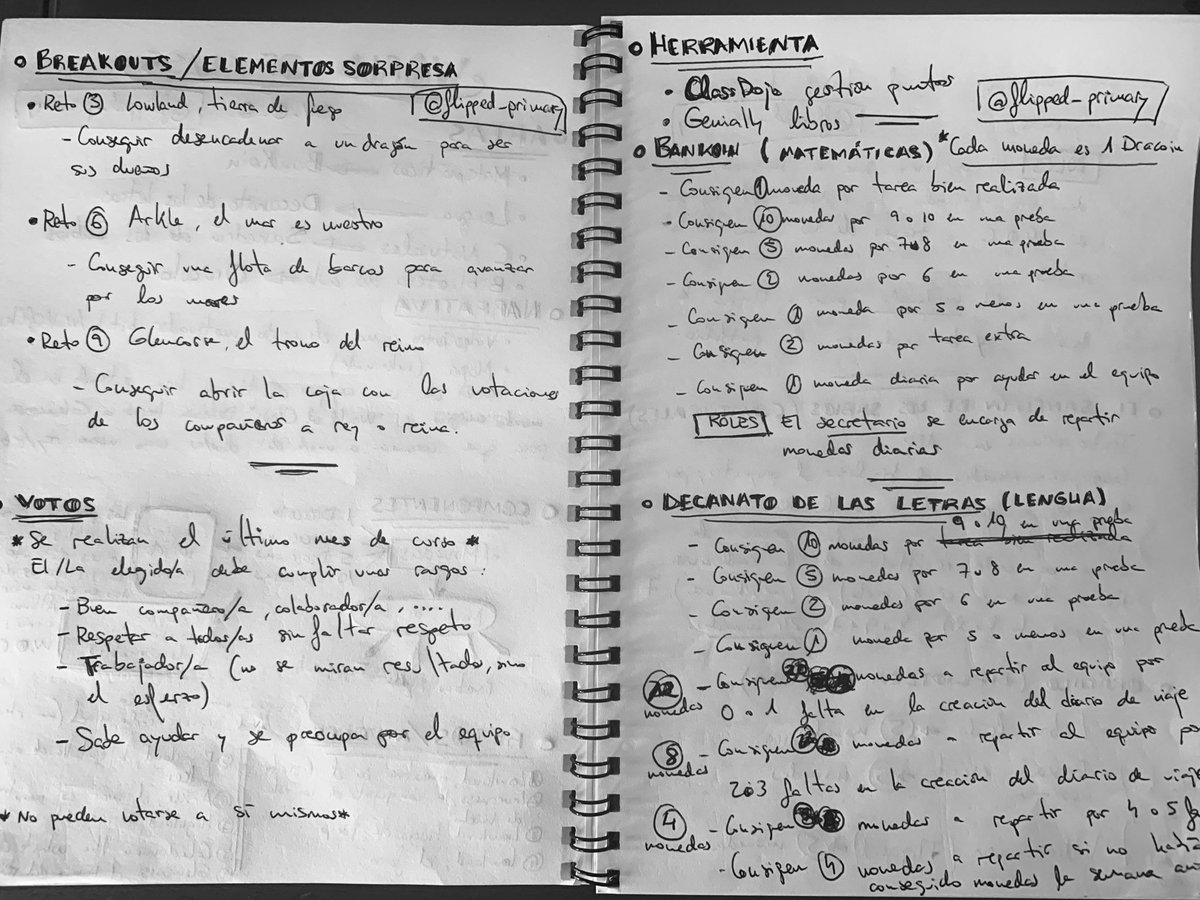 BREAKOUTS / ELEMENTOS SORPRESA
• Reto ③ Lowland, tierra de fuego
@flipped_primary
- Conseguir desencadenar a un dragón para ser
sus dueños
• Reto ⑥ Arkle, el mar es nuestro
- Conseguir una flota de barcos para avanzar
por los mares
• Reto ⑨ Glencorse, el trono del reino
- Conseguir abrir la caja con las votaciones
de los compañeros a rey o reina.
VOTOS
* Se realizan el último mes de curso *
El/La elegido/a debe cumplir unos rasgos:
- Buen compañero/a, colaborador/a, ....
- Respetar a todos/as sin faltar respeto
- Trabajador/a (no se miran resultados, sino
el esfuerzo)
- Sabe ayudar y se preocupa por el equipo
* No pueden votarse a sí mismos *
HERRAMIENTA
• ClassDojo gestión puntos
@flipped_primary
• Genially libros
BANKOIN (MATEMÁTICAS) *Cada moneda es 1 Dracoin
- Consiguen ① moneda por tarea bien realizada
- Consiguen ⑩ monedas por 9 o 10 en una prueba
- Consiguen ⑤ monedas por 7 u 8 en una prueba
- Consiguen ② monedas por 6 en una prueba
- Consiguen ① moneda por 5 o menos en una prueba
- Consiguen ② monedas por tarea extra
- Consiguen ① moneda diaria por ayudar en el equipo
ROLES El secretario se encarga de repartir
monedas diarias
DECANATO DE LAS LETRAS (LENGUA)
- Consiguen ⑩ monedas por 9 o 10 en una prueba
- Consiguen ⑤ monedas por 7 u 8 en una prueba
- Consiguen ② monedas por 6 en una prueba
- Consiguen ① moneda por 5 o menos en una prueba
monedas - Consiguen monedas a repartir al equipo por
0 o 1 falta en la creación del diario de viaje
⑧ monedas - Consiguen monedas a repartir al equipo po
2 o 3 faltas en la creación del diario de viaje
④ monedas - Consiguen monedas a repartir por 4 o 5 fa
- Consiguen ④ monedas a repartir si no había
conseguido monedas la semana an